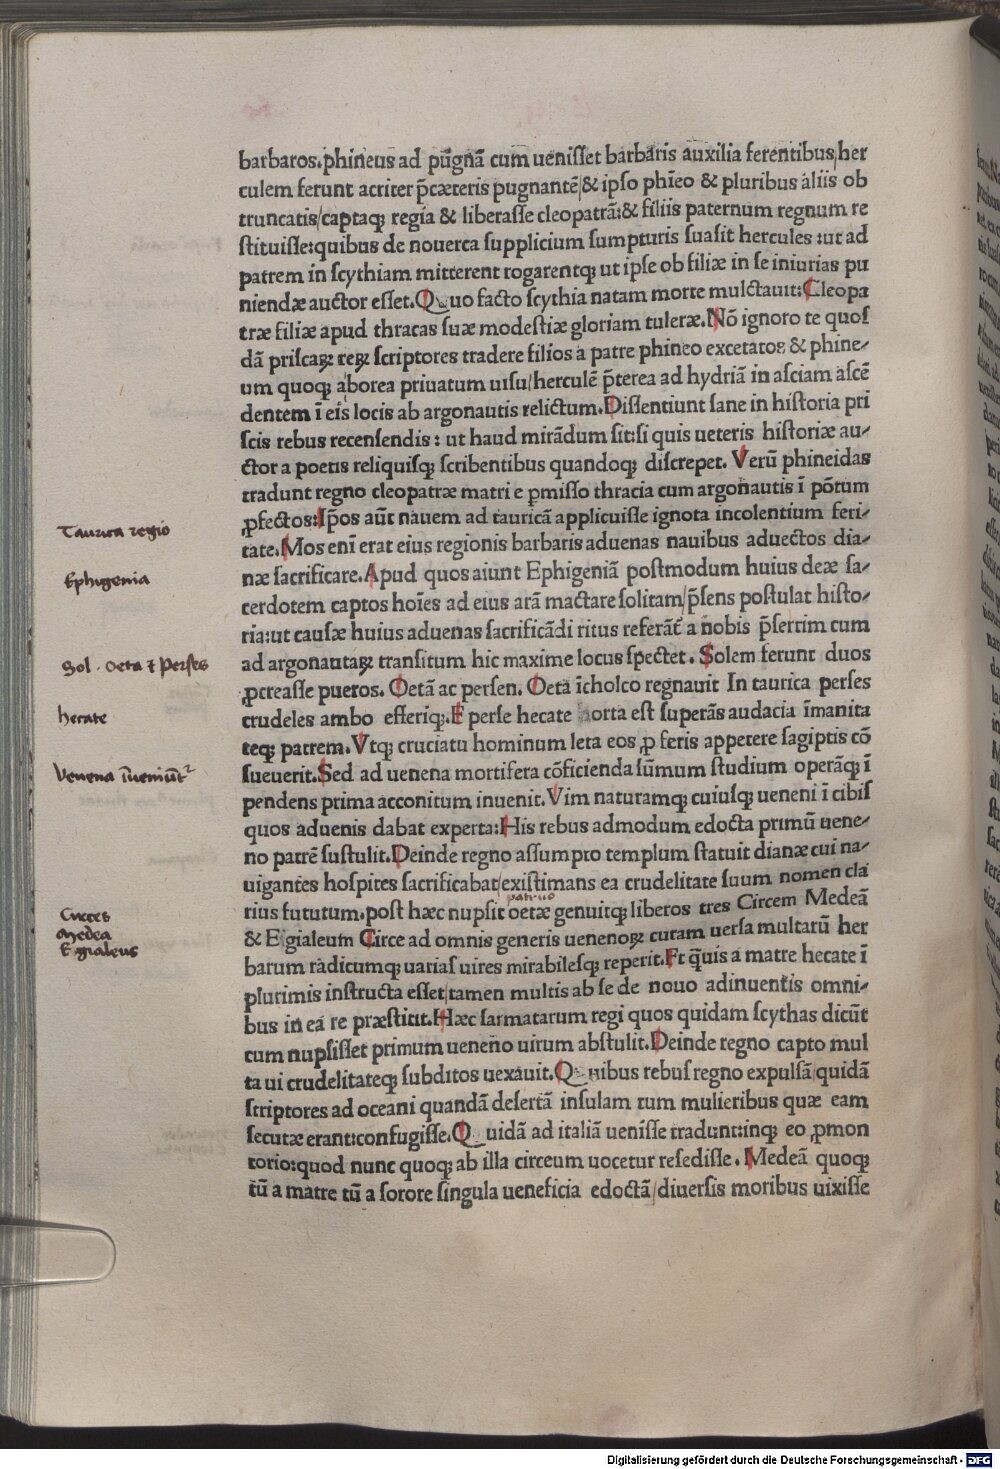 barbaros.phineus ad pūgnā cum ueniſſet barbaris auxilia ferentibus/her
culem ferunt acriter p̄cæteris pugnantē/& ipſo phīeo & pluribus aliis ob
truncatis/captaqꝫ regia & liberaſſe cleopatrā:& filiis paternum regnum re
ſtituiſſe:quibus de nouerca ſupplicium ſumpturis ſuaſit hercules :ut ad
patrem in ſcythiam mitterent rogarentqꝫ ut ipſe ob filiæ in ſe iniurias pu
niendæ auctor eſſet.Quo facto ſcythia natam morte mulctauit:Cleopa
træ filiæ apud thracas ſuæ modeſtiæ gloriam tuleræ.Nō ignoro te quoſ
dā priſcaꝝ reꝝ ſcriptores tradere filios a patre phineo excetatos & phine⸗
um quoqꝫ aborea priuatum uiſu/herculē p̄terea ad hydriā in aſciam aſcē
dentem ī eis locis ab argonautis relictum.Diſſentiunt ſane in hiſtoria pri
ſcis rebus recenſendis : ut haud mirādum ſit:ſi quis ueteris hiſtoriæ au⸗
ctor a poetis reliquiſqꝫ ſcribentibus quandoqꝫ diſcrepet. Verū phineidas
tradunt regno cleopatræ matri e ꝑmiſſo thracia cum argonautis ī pōtum
ꝓfectos:Ip̄os aūt nauem ad tauricā applicuiſſe ignota incolentium feri⸗
tate.Mos enī erat eius regionis barbaris aduenas nauibus aduectos dia⸗
næ ſacrificare.Apud quos aiunt Ephigeniā poſtmodum huius deæ ſa⸗
cerdotem captos hoīes ad eius arā mactare ſolitam/p̄ſens poſtulat hiſto⸗
ria:ut cauſæ huius aduenas ſacrificādi ritus referāt a nobis p̄ſertim cum
ad argonautaꝝ tranſitum hic maxime locus ſpectet. Solem ferunt duos
ꝓcreaſſe pueros. Oetā ac perſen. Oeta īcholco regnauit In taurica perſes
crudeles ambo efferiqꝫ.E perſe hecate horta eſt ſuperās audacia īmanita
teqꝫ patrem.Vtqꝫ cruciatu hominum leta eos ꝓ feris appetere ſagiptis cō
ſueuerit.Sed ad uenena mortifera cōficienda ſūmum ſtudium operāqꝫ ī
pendens prima acconitum inuenit.Vim naturamqꝫ cuiuſqꝫ ueneni ī cibiſ
quos aduenis dabat experta:His rebus admodum edocta primū uene⸗
no patrē ſuſtulit.Deinde regno aſſumpto templum ſtatuit dianæ cui na⸗
uigantes hoſpites ſacrificabat/exiſtimans ea crudelitate ſuum nomen cla
patruo
rius fututum.poſt hæc nupſit oetæ genuitqꝫ liberos tres Circem Medeā
& Egialeum Circe ad omnis generis uenenoꝝ curam uerſa multarū her
barum radicumqꝫ uariaſ uires mirabileſqꝫ reperit.Et q̄uis a matre hecate ī
plurimis inſtructa eſſet/tamen multis ab ſe de nouo adinuentis omni⸗
bus in ea re præſtitit.Hæc ſarmatarum regi quos quidam ſcythas dicūt
cum nupſiſſet primum ueneno uirum abſtulit.Deinde regno capto mul
ta ui crudelitateqꝫ ſubditos uexauit.Quibus rebuſ regno expulſā/quidā
ſcriptores ad oceani quandā deſertā inſulam cum mulieribus quæ eam
ſecutæ erant:confugiſſe.Quidā ad italiā ueniſſe tradunt:inqꝫ eo ꝓmon
torio:quod nunc quoqꝫ ab illa circeum uocetur reſediſſe. Medeā quoqꝫ
tū a matre tū a ſorore ſingula ueneficia edoctā/diuerſis moribus uixiſſe
Taurica regio
Ephigenia
Sol . Oeta & Perses
hecate
Venena īueniūt᷑
Circes
Medea
Egialeus
Digitalisierung gefördert durch die Deutsche Forschungsgemeinschaft - DFG